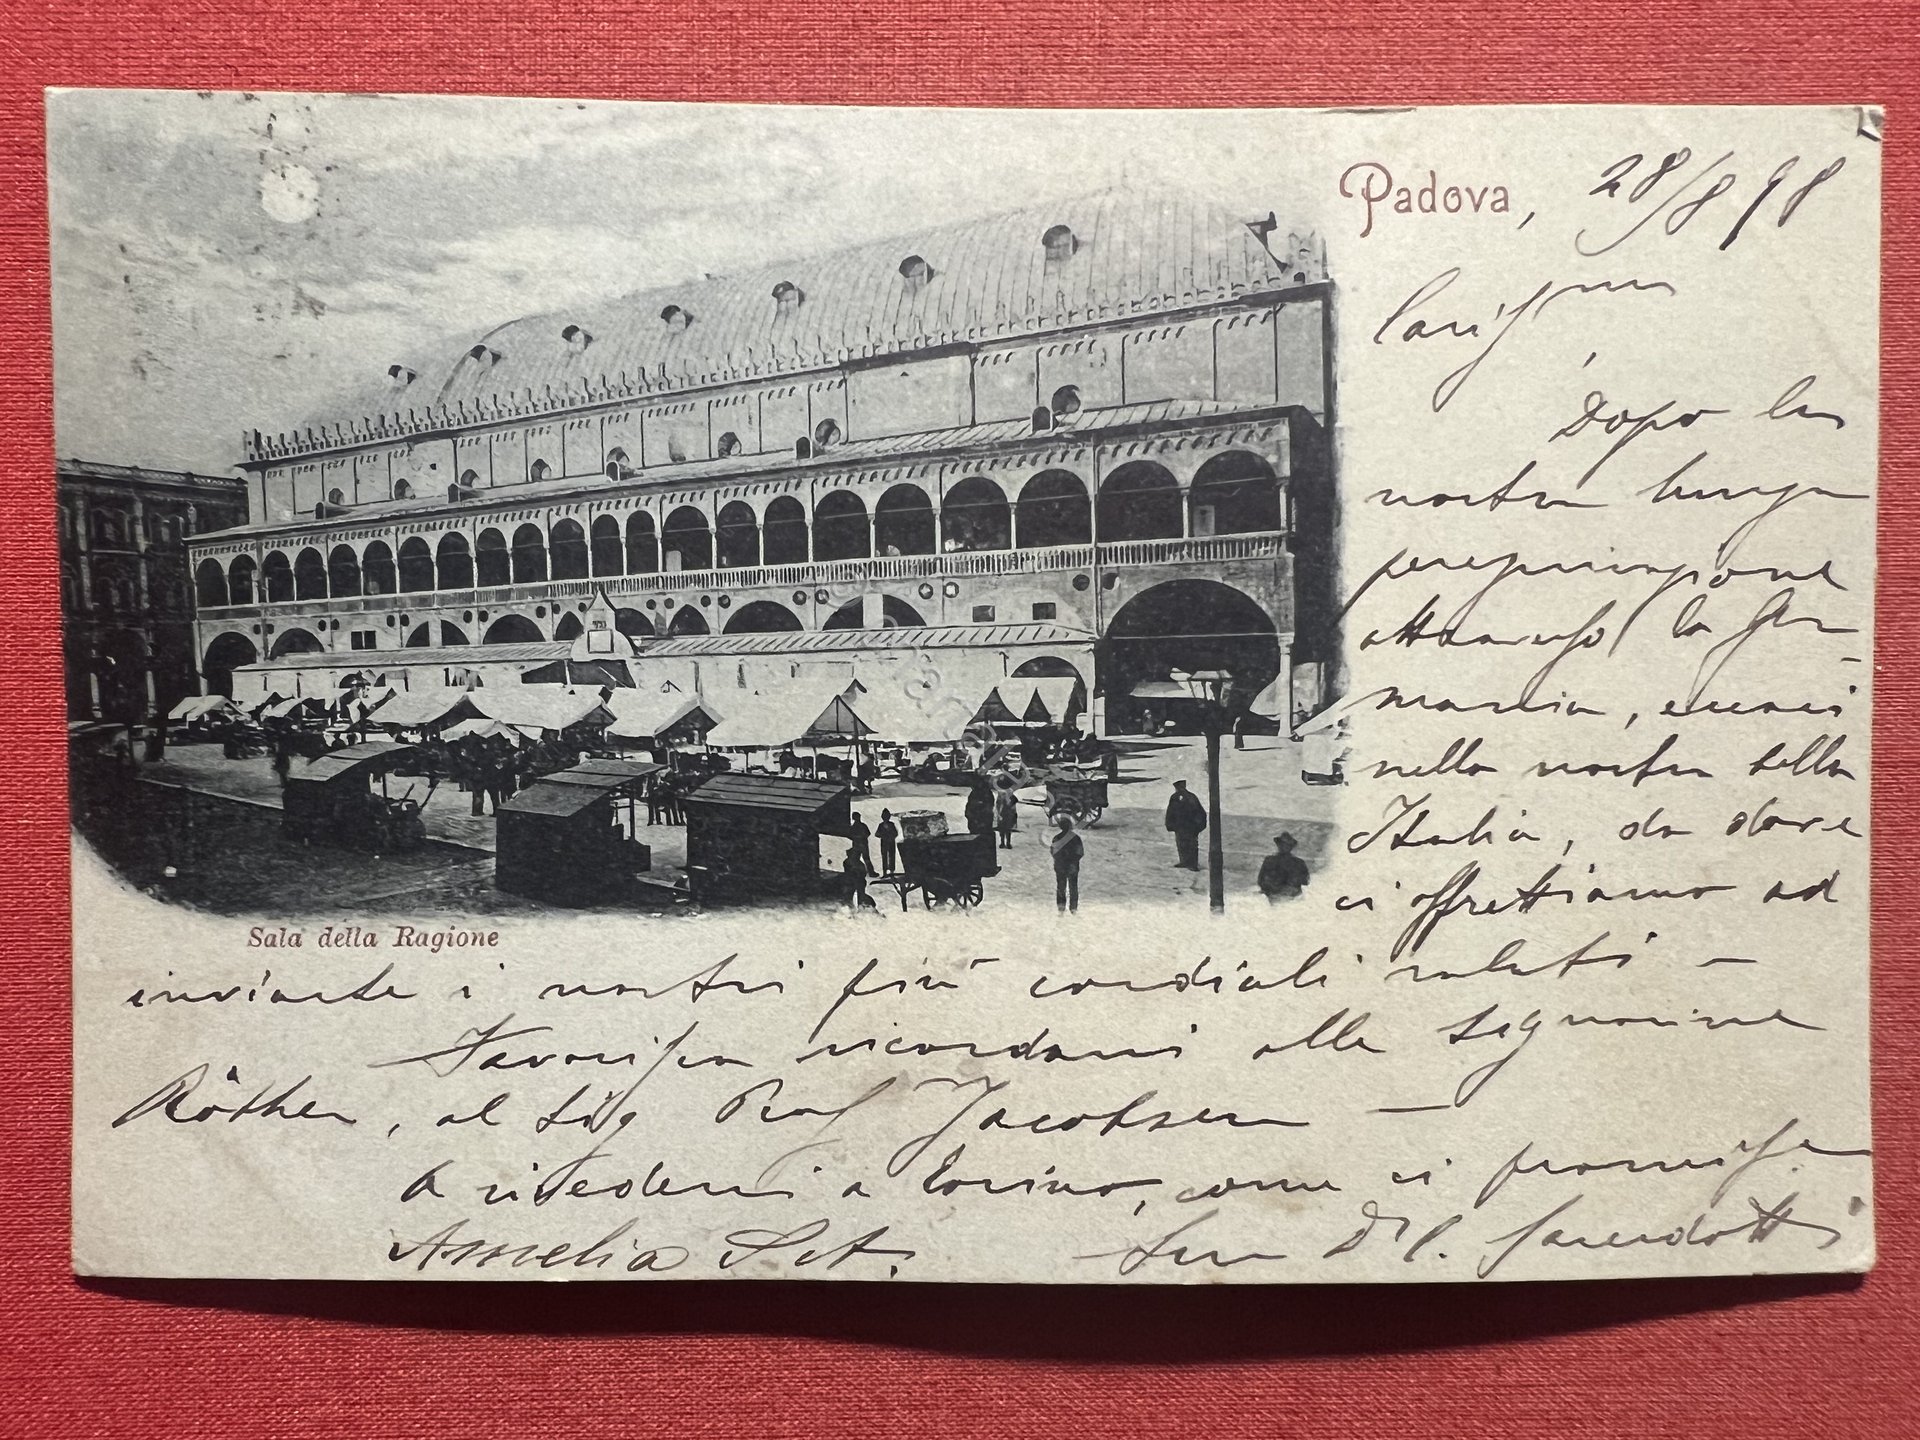 Padova, 28/8 98
Dopo la
nostra lunga
peregrinazione
attraverso la Ger-
mania, eccoci
nella nostra bella
Italia, da dove
ci affrettiamo ad
Sala della Ragione
inviarle i nostri più cordiali saluti -
Favorisca ricordarci alle Signorine
Röther, al Sig Prof Jacobsen -
A rivederci a Torino, come ci promise
Amelia Sct. Suo Dr C. Sacerdotti